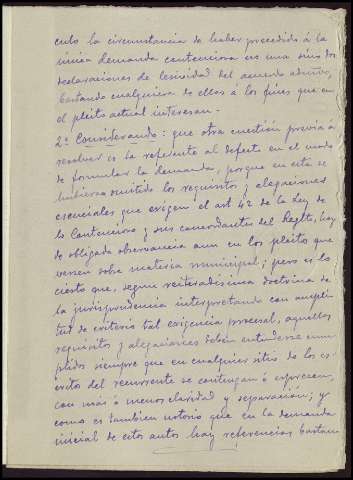 culo la circunstancia de haber precedido á la
única demanda contenciosa no una sino dos
declaraciones de lesividad del acuerdo
bastando cualquiera de ellas á los fines que en
el pleito actual interesan.-
2º Considerando: que otra cuestión previa á
resolver es la referente al defecto en el modo
de formular la demanda, porque en esta se
hubieran omitido los requisitos y alegaciones
esenciales que exigen el art 42 de la Ley de
lo Contencioso y sus concordantes del Reglto, hoy
de obligada observancia aun en los pleitos que
versen sobre materia municipal; pero es lo
cierto que, segun reiteradisima doctrina de
la jurisprudencia interpretando con ampli
tud de criterio tal exigencia procesal, aquellos
requisitos y alegaciones deben entenderse cum
plidos siempre que en cualquier sitio de los es
critos del recurrente se contengan ó expresen,
con más ó menos claridad y separación; y
como es tambien notorio que en la demanda
inicial de estos autos hay referencias bastan